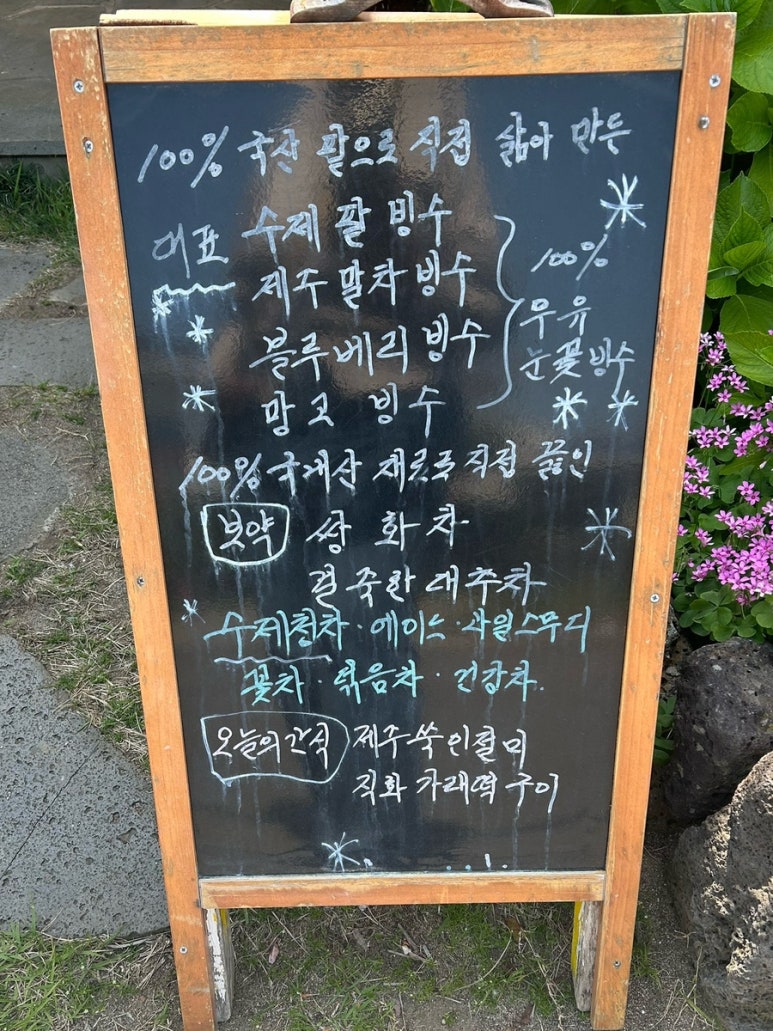 100% 국산 팥으로 직접 삶아 만든
대표 수제 팥 빙수
제주 말차 빙수
블루베리 빙수
망고 빙수
100%
우유
눈꽃빙수
100% 국내산 재료로 직접 끓인
보약 쌍화차
걸쭉한 대추차
수제청차·에이드·사일스무디
꽃차·덖음차·건강차.
오늘의간식 제주쑥인절미
직화 가래떡 구이